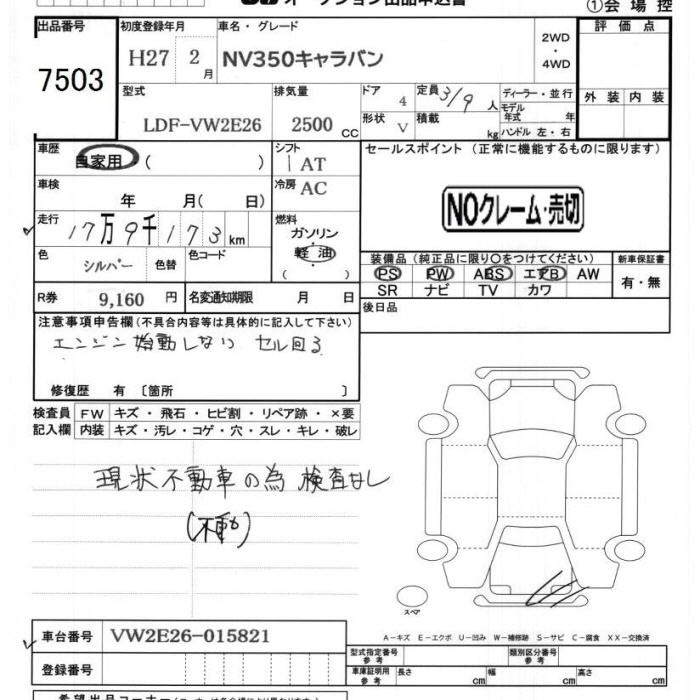 オークション出品申込書
①会場控
出品番号
7503
初度登録年月
H27 2月
車名・グレード
NV350キャラバン
2WD
・
4WD
評価点
外装 内装
型式
LDF-VW2E26
排気量
2500 cc
ドア 4
形状 V
定員 3/9 人
積載 kg
ディーラー・並行
モデル年式 年
ハンドル 左・右
車歴 自家用 ( )
シフト
AT
車検 年 月( 日)
冷房 AC
走行 17万9千173 km
燃料
ガソリン
軽油
( )
色 シルバー 色替
色コード
R券 9,160 円
名変通知期限 月 日
セールスポイント (正常に機能するものに限ります)
NOクレーム・売切
装備品 (純正品に限り〇をつけてください)
PS PW ABS エアB AW
SR ナビ TV カワ
新車保証書
有・無
後日品
注意事項申告欄(不具合内容等は具体的に記入して下さい)
エンジン始動しない セル回る
修復歴 有 〔箇所 〕
検査員 FW キズ・飛石・ヒビ割・リペア跡・×要
記入欄 内装 キズ・汚レ・コゲ・穴・スレ・キレ・破レ
現状不動車の為 検査なし
(不動)
スペア
A-キズ E-エクボ U-凹み W-補修跡 S-サビ C-腐食 XX-交換済
車台番号 VW2E26-015821
登録番号
型式指定番号 参考
類別区分番号 参考
車庫証明用 参考 長さ cm 幅 cm 高さ cm